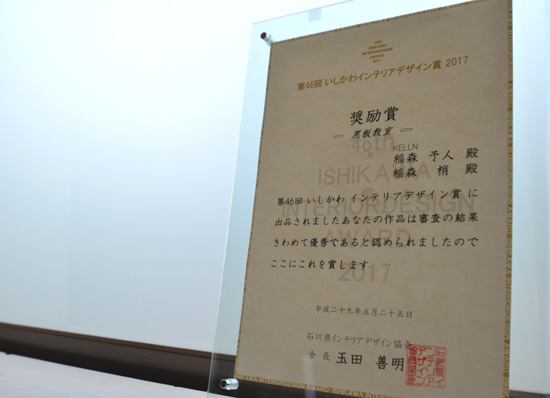 第46回 いしかわインテリアデザイン賞 2017
奨励賞
黒板教室
46th
KELLN
稲森 予人 殿
稲森 梢 殿
ISHIKAWA
第46回 いしかわ インテリアデザイン賞 に
INTERIORDESIGN
出品されましたあなたの作品は審査の結果
AWARD
きわめて優秀であると認められましたので
2017
ここにこれを賞します
平成二十九年五月二十五日
石川県インテリアデザイン協会
会長 玉田 善明